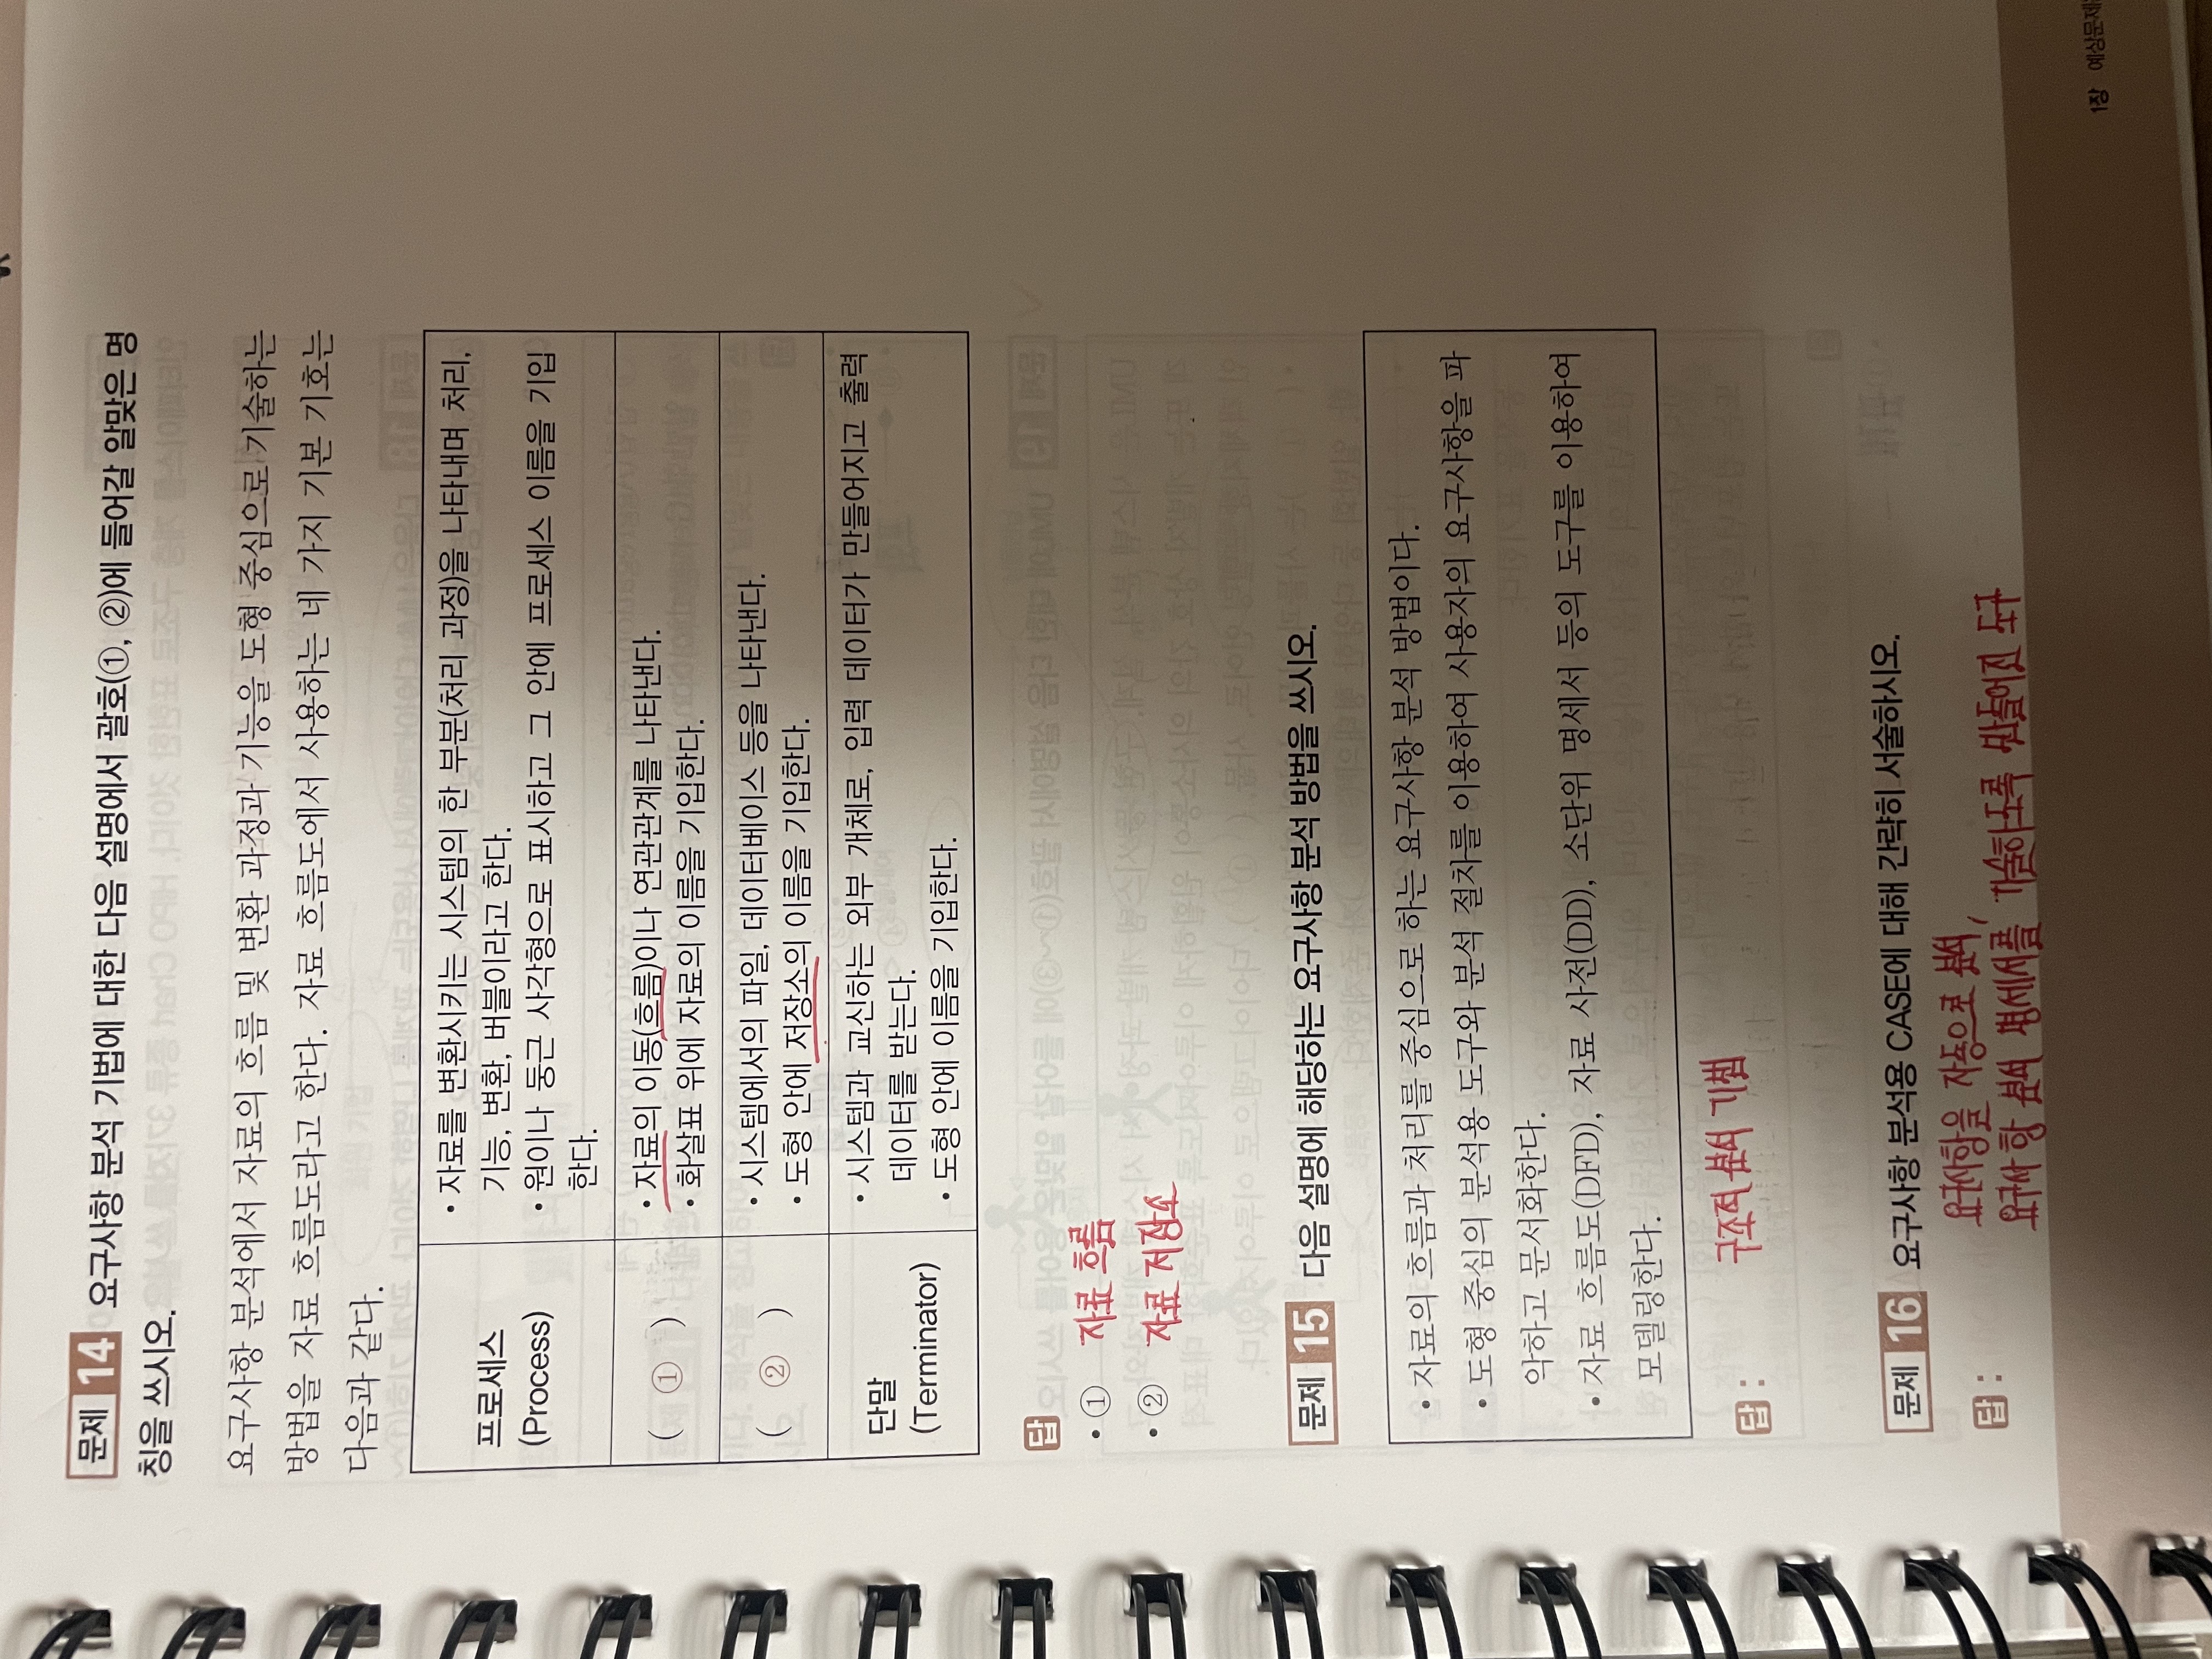 문제 14 요구사항 분석 기법에 대한 다음 설명에서 괄호(①, ②)에 들어갈 알맞은 명
칭을 쓰시오.
요구사항 분석에서 자료의 흐름 및 변환 과정과 기능을 도형 중심으로 기술하는
방법을 자료 흐름도라고 한다. 자료 흐름도에서 사용하는 네 가지 기본 기호는
다음과 같다.
프로세스
(Process)
• 자료를 변환시키는 시스템의 한 부분(처리 과정)을 나타내며 처리,
기능, 변환, 버블이라고 한다.
• 원이나 둥근 사각형으로 표시하고 그 안에 프로세스 이름을 기입
한다.
( ① )
• 자료의 이동(흐름)이나 연관관계를 나타낸다.
• 화살표 위에 자료의 이름을 기입한다.
( ② )
• 시스템에서의 파일, 데이터베이스 등을 나타낸다.
• 도형 안에 저장소의 이름을 기입한다.
단말
(Terminator)
• 시스템과 교신하는 외부 개체로, 입력 데이터가 만들어지고 출력
데이터를 받는다.
• 도형 안에 이름을 기입한다.
답
• ① 자료 흐름
• ② 자료 저장소
문제 15 다음 설명에 해당하는 요구사항 분석 방법을 쓰시오.
• 자료의 흐름과 처리를 중심으로 하는 요구사항 분석 방법이다.
• 도형 중심의 분석용 도구와 분석 절차를 이용하여 사용자의 요구사항을 파
악하고 문서화한다.
• 자료 흐름도(DFD), 자료 사전(DD), 소단위 명세서 등의 도구를 이용하여
모델링한다.
답 : 구조적 분석 기법
문제 16 요구사항 분석용 CASE에 대해 간략히 서술하시오.
답 : 요구사항을 자동으로 분석,
요구사항 분석 명세서를 기술하도록 만들어진 도구
1장 예상문제